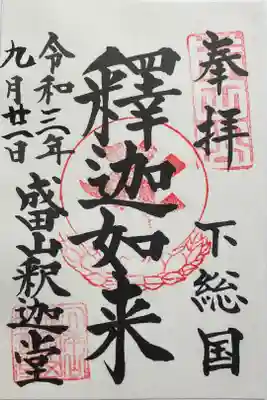 奉拝
下総国
釋迦如来
令和三年
九月廿一日
成田山釈迦堂